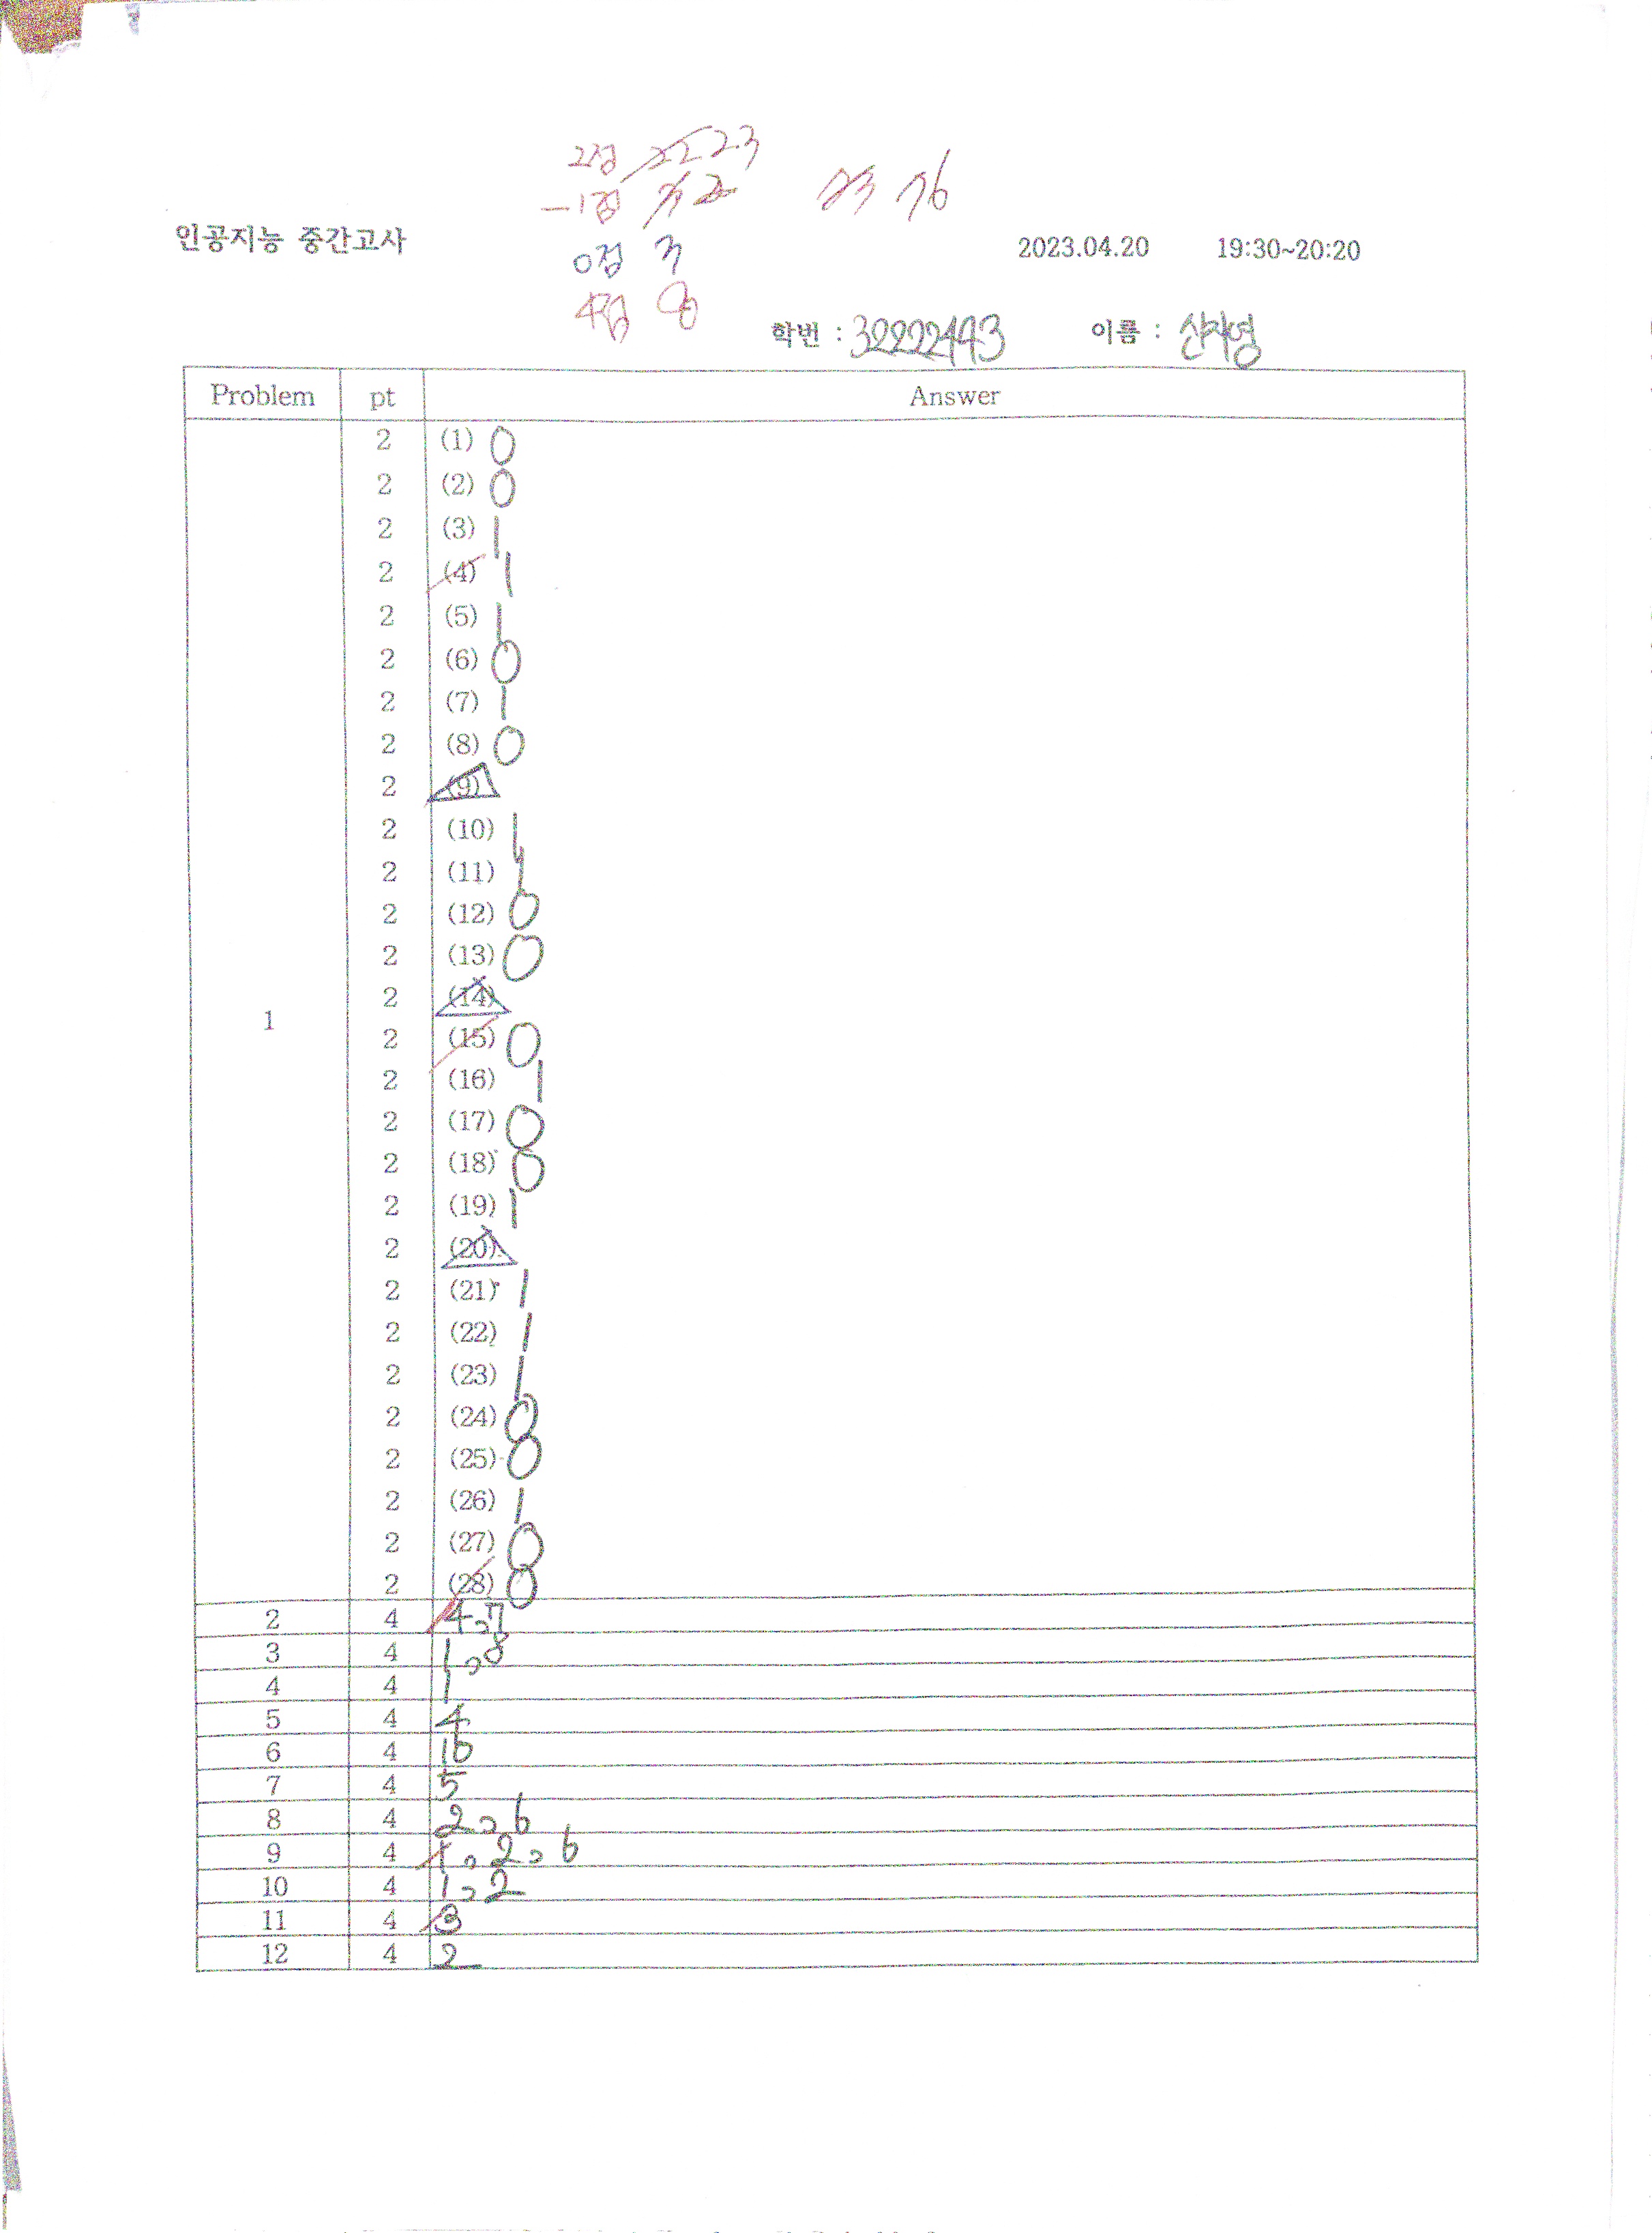 2점 23
-1점 2
인공지능 중간고사 76 2023.04.20 19:30~20:20
0점 3
4점 8
학번 : 32222493 이름 :
Problem pt Answer
2 (1) 0
2 (2) 0
2 (3) 1
2 (4) 1
2 (5) 1
2 (6) 0
2 (7) 1
2 (8) 0
2 (9)
2 (10) 1
2 (11) 1
2 (12) 0
2 (13) 0
2 (14)
1
2 (15) 0
2 (16) 1
2 (17) 0
2 (18) 0
2 (19) 1
2 (20)
2 (21) 1
2 (22) 1
2 (23) 1
2 (24) 0
2 (25) 0
2 (26) 1
2 (27) 0
2 (28) 0
2 4 4,7
3 4 1,8
4 4 1
5 4 4
6 4 16
7 4 5
8 4 2,6
9 4 1,2,6
10 4 1,2
11 4 3
12 4 2